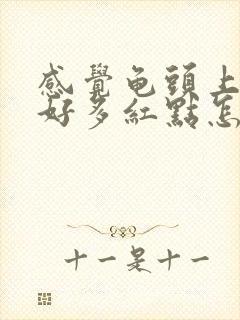 感覺龟頭上
好多紅點怎
十一是十一